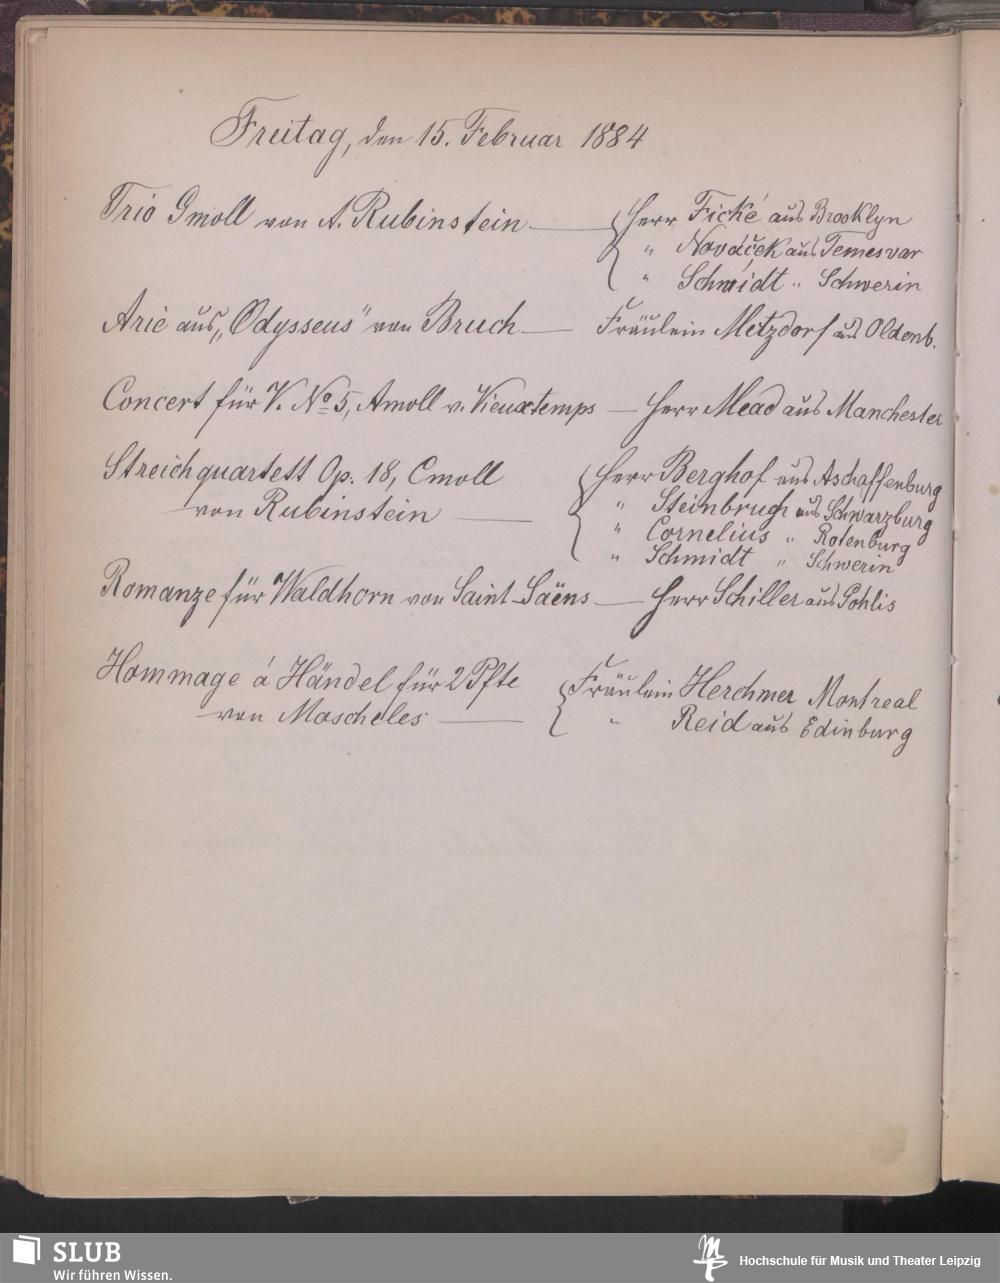 Freitag, den 15. Februar 1884
Trio Gmoll von A. Rubinstein — Herr Fické aus Brooklyn
" Nováček aus Temesvar
" Schmidt " Schwerin
Arie aus „Odysseus" von Bruch — Fräulein Metzdorf aus Oldenb.
Concert für V. No 5, Amoll v. Vieuxtemps — Herr Mead aus Manchester
Streichquartett Op. 18, Cmoll
von Rubinstein —
Herr Berghof aus Aschaffenburg
" Steinbruch aus Schwarzburg
" Cornelius " Rotenburg
" Schmidt " Schwerin
Romanze für Waldhorn von Saint-Saëns — Herr Schiller aus Gohlis
Hommage á Händel für 2 Pfte
von Moscheles —
Fräulein Herchmer Montreal
" Reid aus Edinburg
SLUB
Wir führen Wissen.
Hochschule für Musik und Theater Leipzig